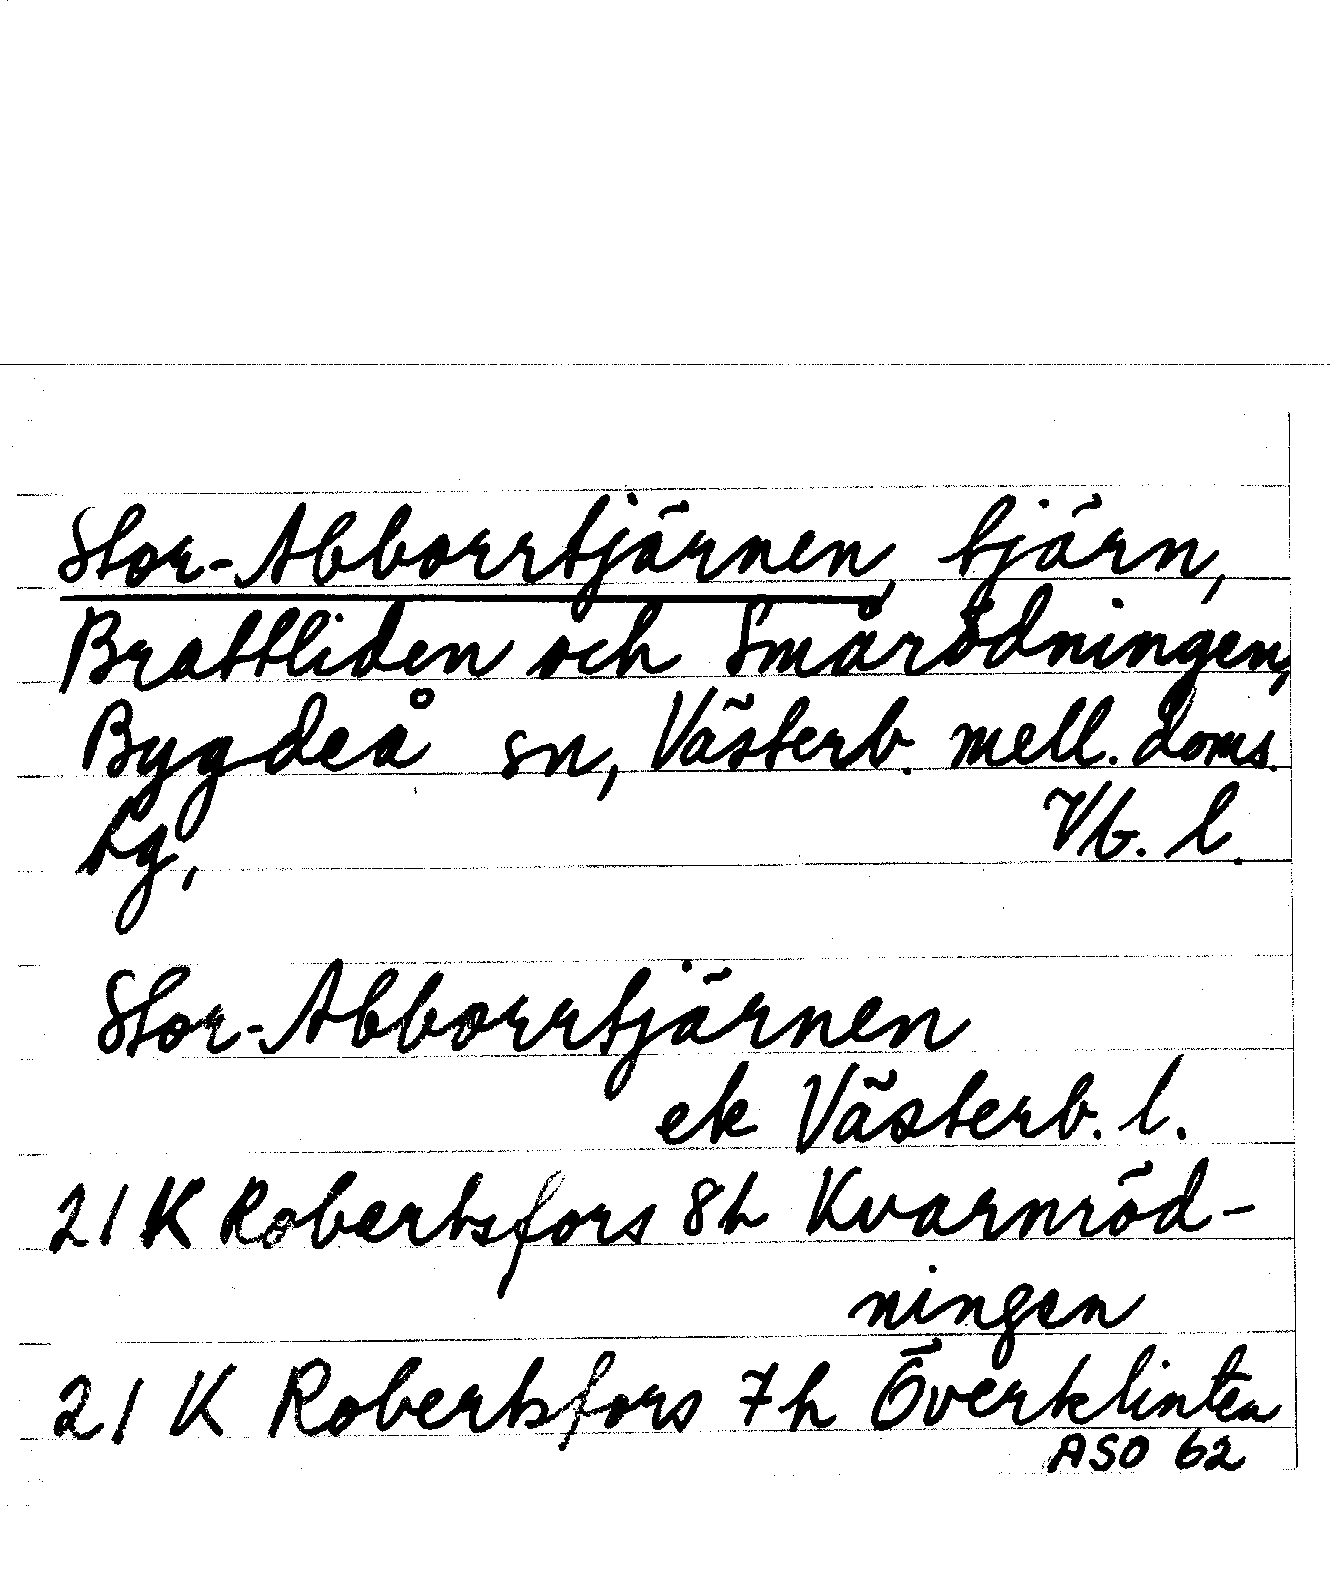 Stor-Abborrtjärnen, tjärn,
Brattliden och Smårödningen,
Bygdeå sn, Västerb. mell. doms.
lg, Vb. l.
Stor-Abborrtjärnen
ek Västerb. l.
21 K Robertsfors 8h Kvarnröd-
ningen
21 K Robertsfors 7h Överklinten
ASO 62